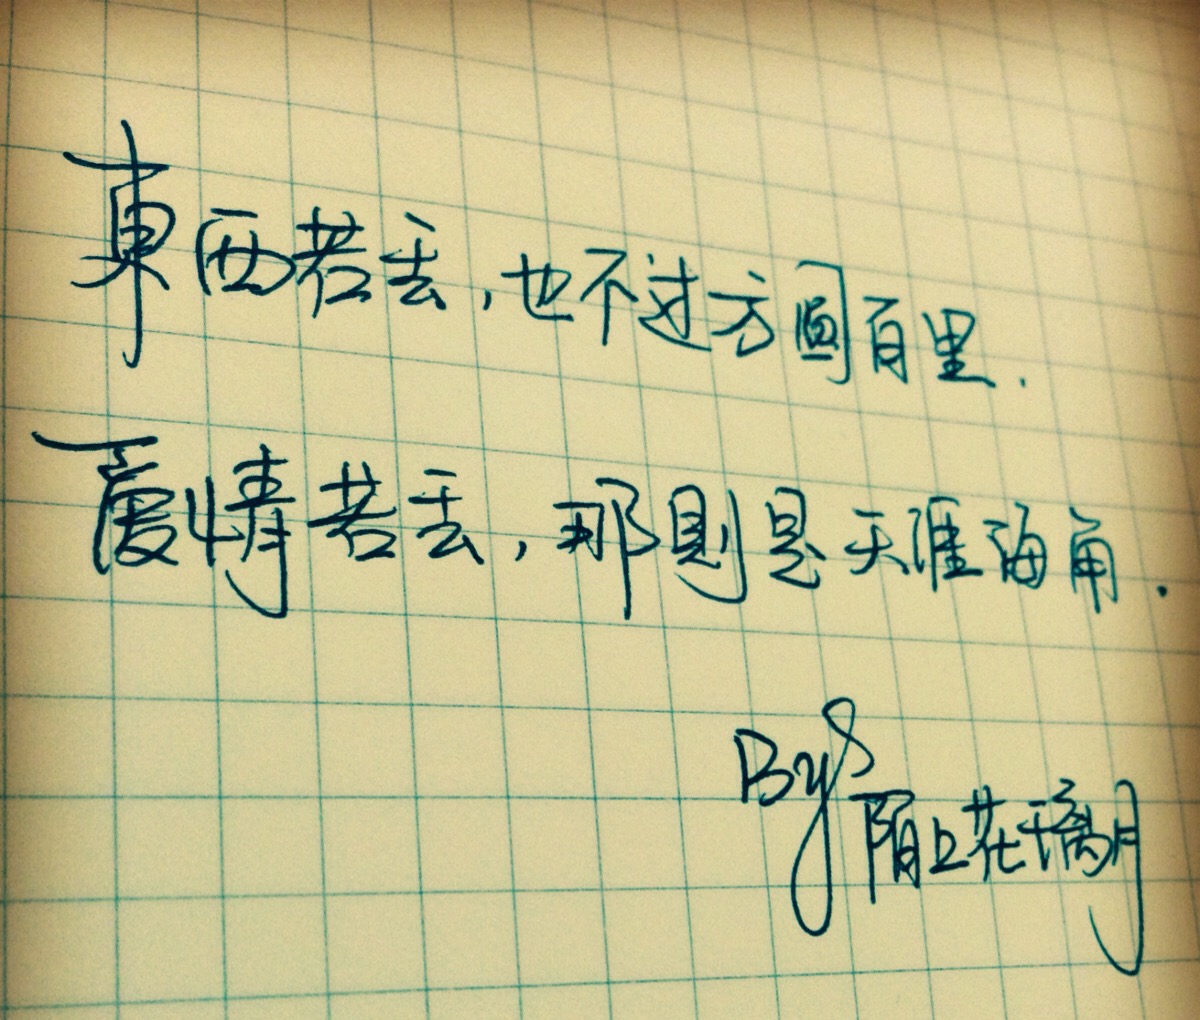 東西若丢,也不过方圓百里.
愛情若丢,那則是天涯海角.
By
陌上花千璃月